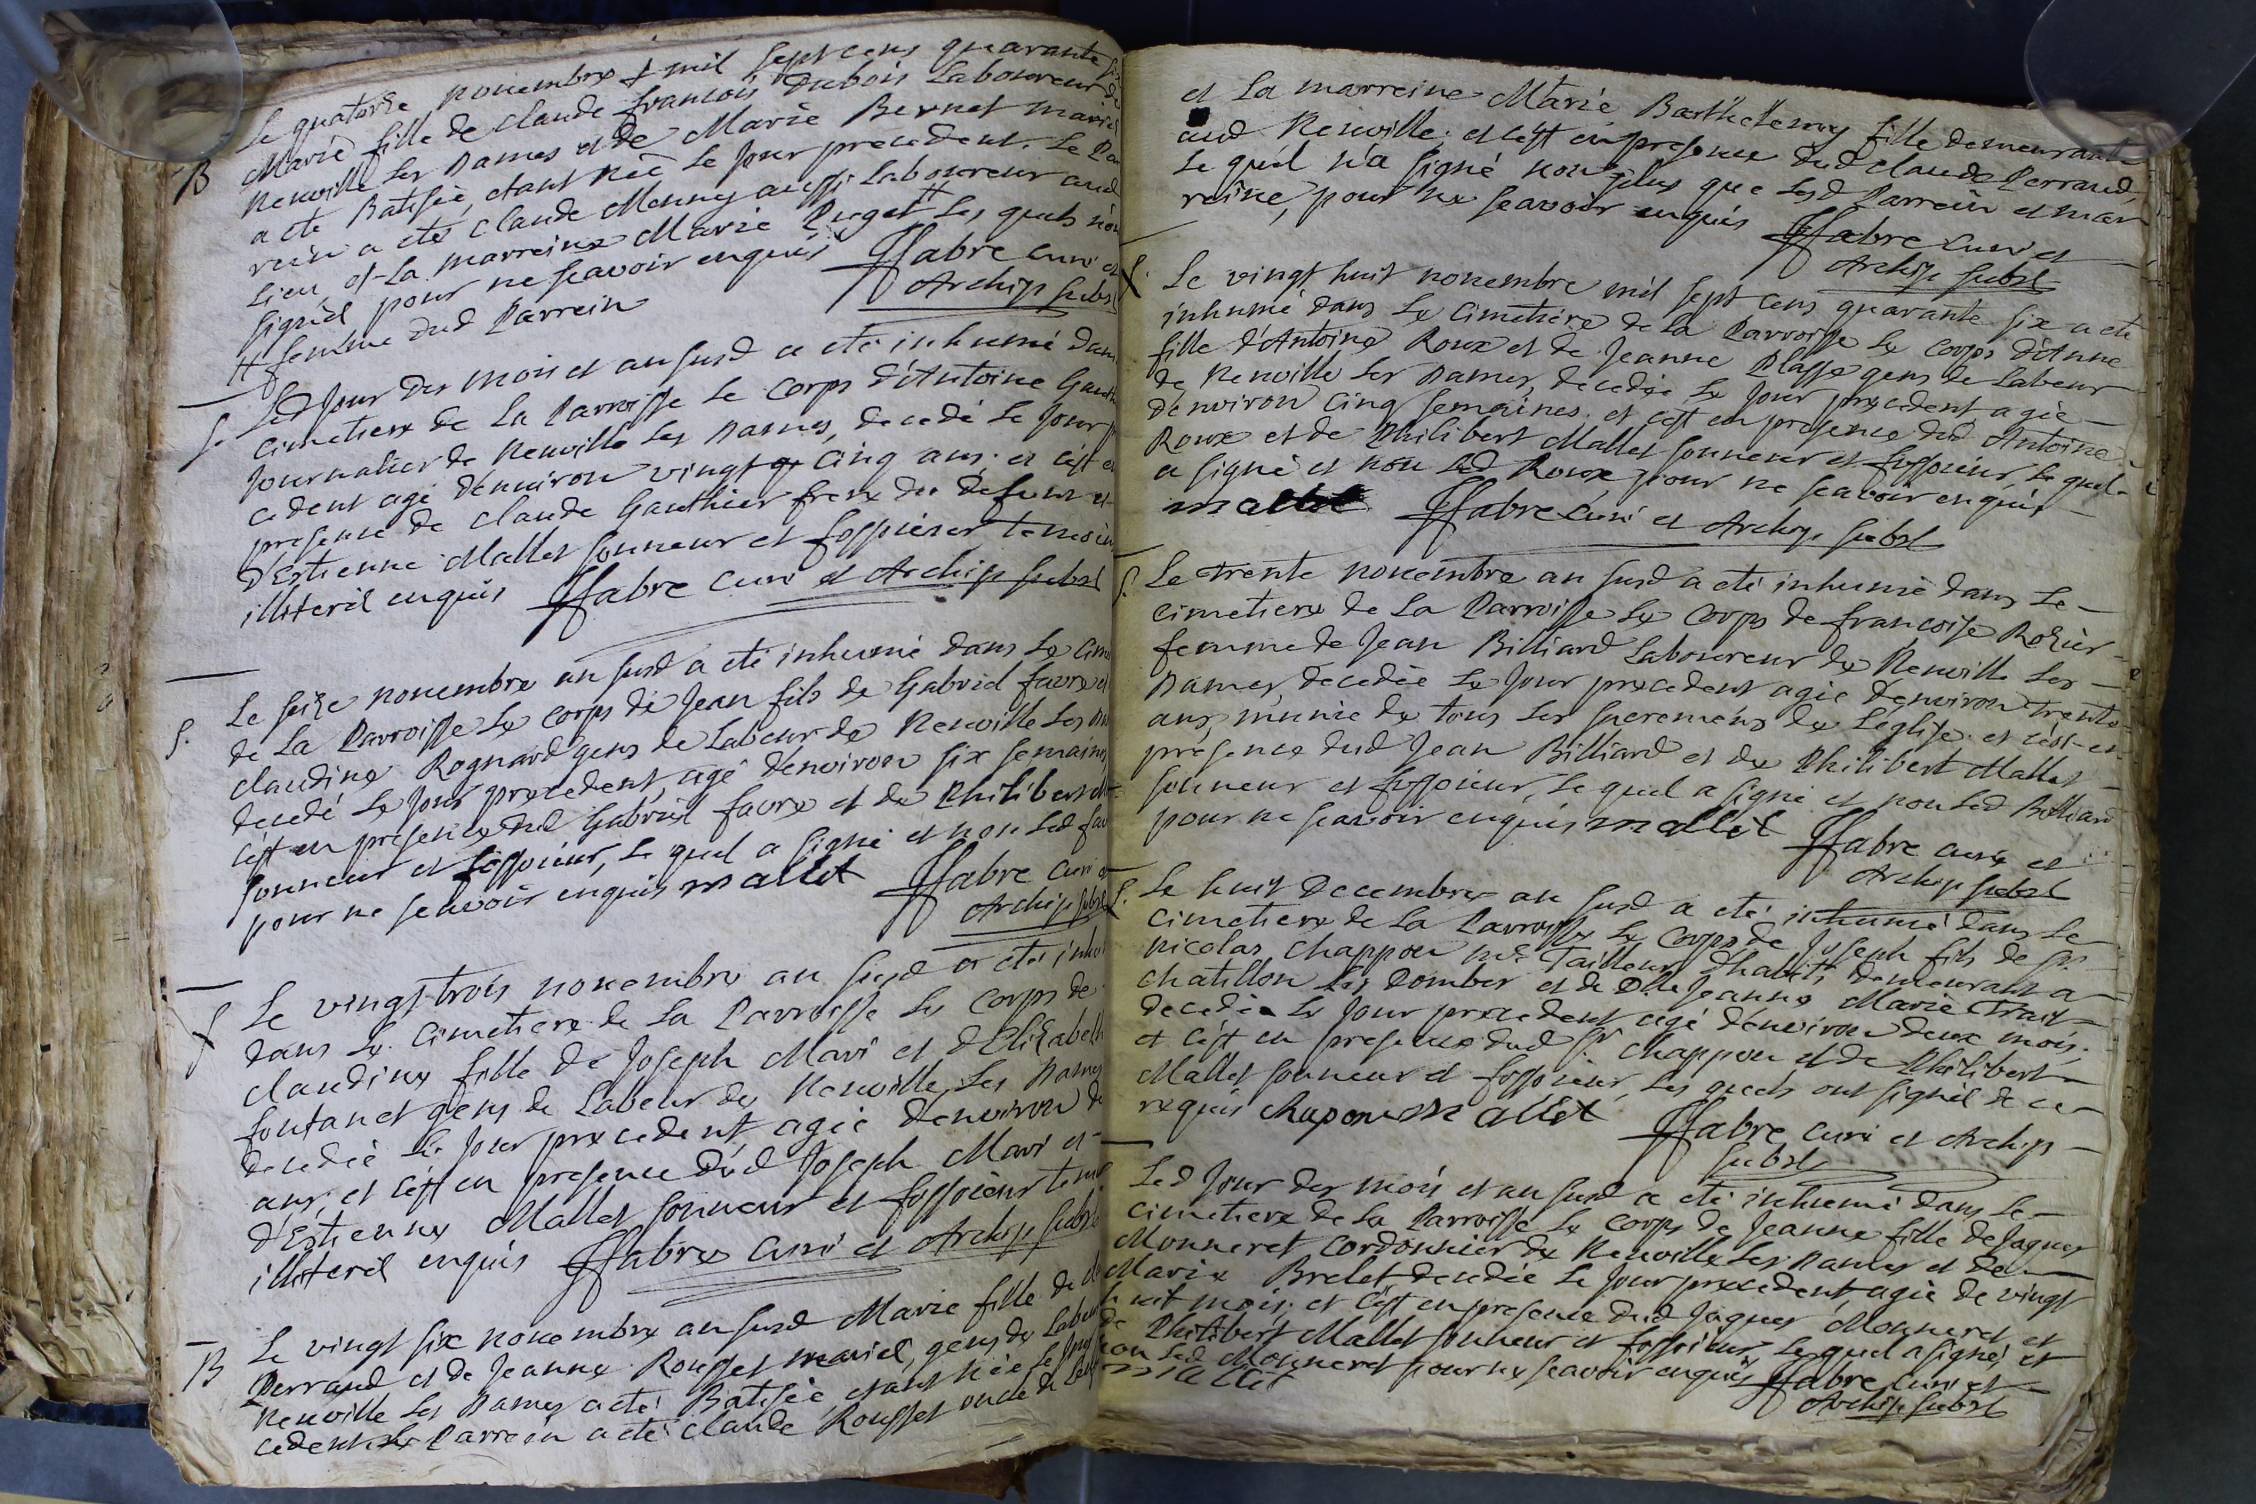 Le quatorze novembre mil sept cens quarante six
B
Marie fille de Claude francois Dubois Laboureur de
Neuville Les Dames et de Marie Bernet mariés
a eté Batisée, etant née Le jour precedent. Le Par
rein a eté Claude Monney aussi Laboureur aud
Lieu et La marreine Marie Puget # Les quels n'ont
signéz pour ne scavoir enquis ffabre curé et
# femme dud Parrein Archip subst
S.
Led Jour des mois et an susd a eté inhumé dans
cimetiere de La Parroisse Le corps d'Antoine Gauth
Journalier de Neuville Les Dames, decedé Le Jour p
cedent agé d'environ vingt cinq ans. et c'est en
presence de claude Gauthier frere du defunt et
d'Estienne Mallet sonneur et fossoieur temoin
illiterés enquis ffabre curé et Archip subst
S.
Le seize novembre an susd a eté inhumé dans Le cime
de La Parroisse Le corps de Jean fils de Gabriel favre et
claudine Rognard gens de Labeur de Neuville Les Da
decedé Le Jour precedent, agé d'environ six semaines
c'est en presence dud Gabriel favre et de Philibert
sonneur et fossoieur, Le quel a signé et non Led fav
pour ne scavoir enquis mallet ffabre curé et
Archip subst
S
Le vingt trois novembre an susd a eté inhu
dans Le cimetiere de La Parroisse Le corps de
claudine fille de Joseph Mari et d'Elizabeth
fontanet gens de Labeur de Neuville Les Dames
decedée Le Jour precedent, agée d'environ de
ans, et c'est en presence dud Joseph Mari et
d'Estienne Mallet sonneur et fossoieur temo
illiterés enquis ffabre curé et Archip subst
B
Le vingt six novembre an susd Marie fille de
Perraud et de Jeanne Rousset mariés, gens de Labeur
Neuville Les Dames a eté Batisée, etant née Le Jour
cedent Le Parrein a eté claude Rousset oncle de
et La marreine Marie Barthelemy fille demeurante
aud Neuville. et c'est en presence dud claude Perraud,
Le quel n'a signé non plus que Lesd Parrein et mar
reine, pour ne scavoir enquis ffabre curé et
Archip subst
S.
Le vingt huit novembre mil sept cens quarante six a eté
inhumé dans Le Cimetiere de La Parroisse Le corps d'Anne
fille d'Antoine Roux et de Jeanne Plasse gens de Labeur
de Neuville Les Dames, decedée Le Jour precedent agée
d'environ cinq semaines. et c'est en presence dud Antoine
Roux et de Philibert Mallet sonneur et fossoieur, Le quel
a signé et non Led Roux pour ne scavoir enquis
mallet ffabre curé et Archip subst
S.
Le trente novembre an susd a eté inhumé dans Le
cimetiere de La Parroisse Le Corps de francoise Rozier
femme de Jean Billiard Laboureur de Neuville Les
Dames, decedée Le Jour precedent agée d'environ trente
ans, munie de tous Les sacremens de L'eglise. et c'est en
presence dud Jean Billiard et de Philibert Mallet
sonneur et fossoieur, Le quel a signé et non Led Billiard
pour ne scavoir enquis mallet ffabre curé et
Archip subst
S.
Le huit Decembre an susd a eté inhumé dans Le
cimetiere de La Parroisse Le Corps de Joseph fils de Sr.
nicolas chappon me. Tailleur d'habits demeurant a
chatillon Les Dombes et de Dlle Jeanne Marie Trait
decedé Le Jour precedent agé d'environ deux mois,
et c'est en presence dud Sr. chappon et de Philibert
Mallet sonneur et fossoieur, Les quels ont signéz de ce
requis chapon mallet ffabre curé et Archip
subst
Led Jour des mois et an susd a eté inhumé dans Le
cimetiere de La Parroisse Le corps de Jeanne fille de Jaques
Monneret cordonnier de Neuville Les Dames et de
Marie Brelet, decedée Le Jour precedent agée de vingt
huit mois. et c'est en presence dud Jaques Monneret et
de Philibert Mallet sonneur et fossoieur, Lequel a signé, et
non Led Monneret pour ne scavoir enquis ffabre curé et
mallet Archip subst